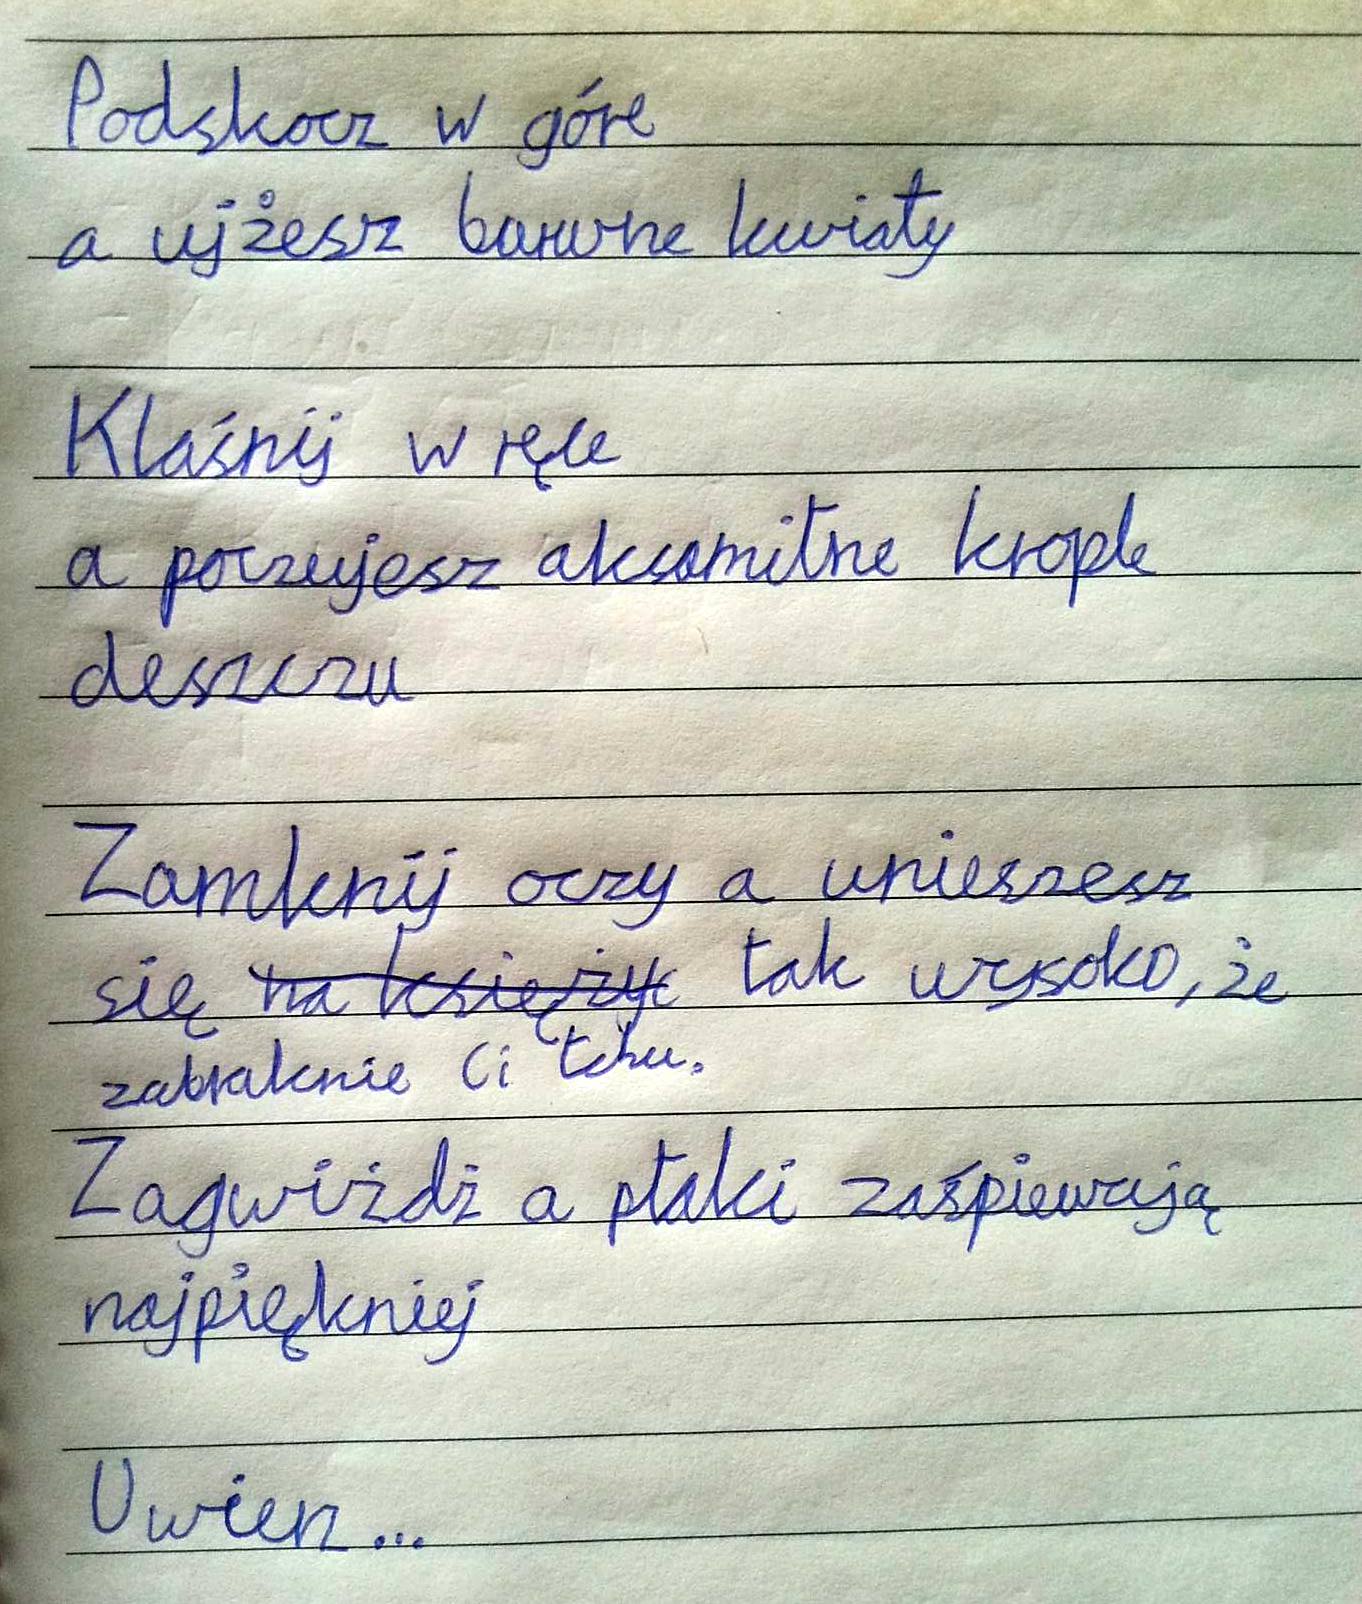 Podskocz w górę
a ujżesz barwne kwiaty
Klaśnij w ręce
a poczujesz aksamitne krople
deszczu
Zamknij oczy a uniesiesz
się na księżyc tak wysoko, że
zabraknie Ci tchu.
Zagwiżdż a ptaki zaśpiewają
najpiękniej
Uwierz...